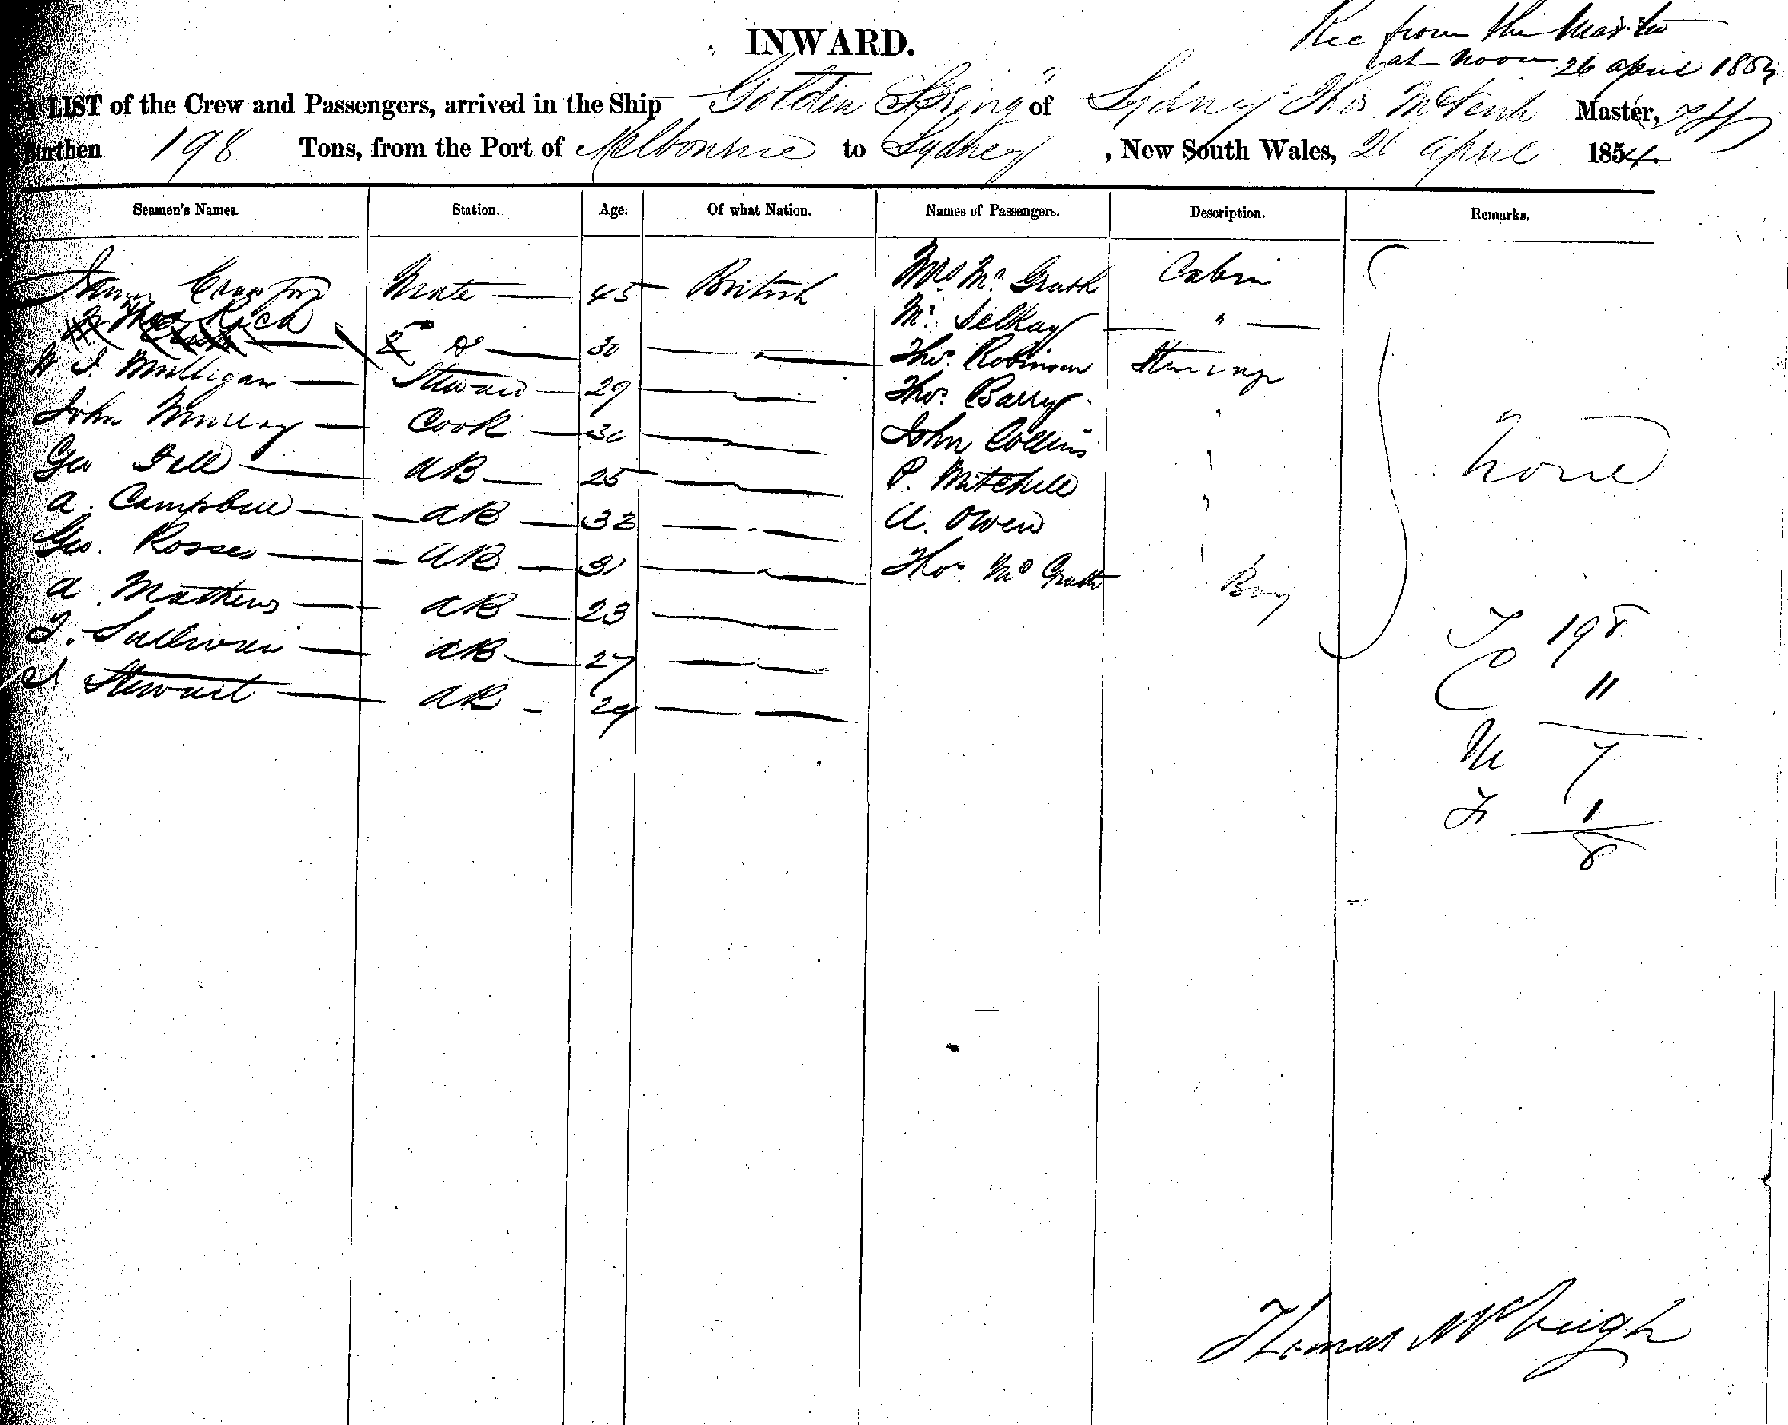 INWARD.
Rec from the Master
at noon 26 april 1854
LIST of the Crew and Passengers, arrived in the Ship Golden Spring of Sydney Thos Master,
Burthen 198 Tons, from the Port of Melbourne to Sydney, New South Wales, 26 april 1854.
Seamen's Names. Station. Age. Of what Nation. Names of Passengers. Description. Remarks.
Mate 45 British Mrs Mc Grath Cabin
2 Do 30 Mr. "
W J Mulligan Steward 29 Thos. Robinson Steerage
John Murray Cook 30 Thos. Barry
Geo AB 25 John Collins none
a. Campbell AB 32 P. Mitchell
Geo. AB 31 A. Owen
a Mathews AB 23 Thos Mc Grath Boy
J. Sullivan AB 27 T 198
J Stewart AB 29 C 11
M 7
F 1
8
Thomas McVeigh